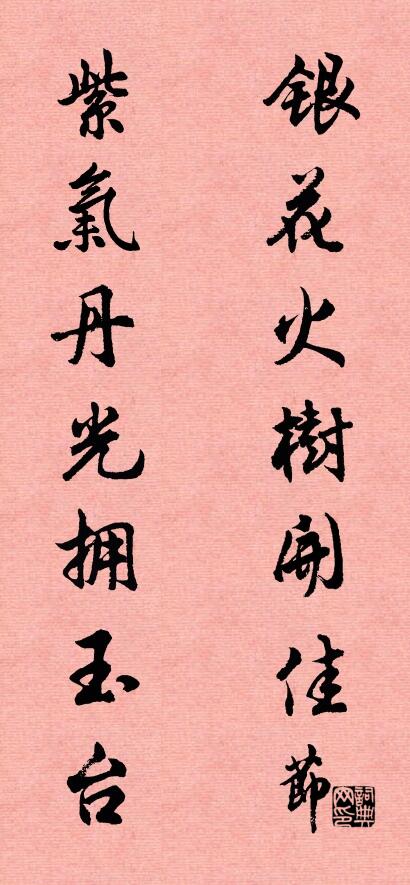 銀花火樹開佳節
紫氣丹光拥玉台
詞典网印